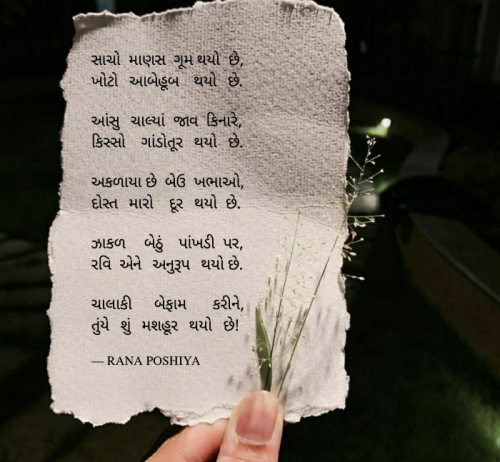 સાચો માણસ ગૂમ થયો છે,
ખોટો આબેહૂબ થયો છે.
આંસુ ચાલ્યાં જાવ કિનારે,
કિસ્સો ગાંડોતૂર થયો છે.
અકળાયા છે બેઉ ખભાઓ,
દોસ્ત મારો દૂર થયો છે.
ઝાકળ બેઠું પાંખડી પર,
રવિ એને અનુરૂપ થયો છે.
ચાલાકી બેફામ કરીને,
તુંયે શું મશહૂર થયો છે!
— RANA POSHIYA